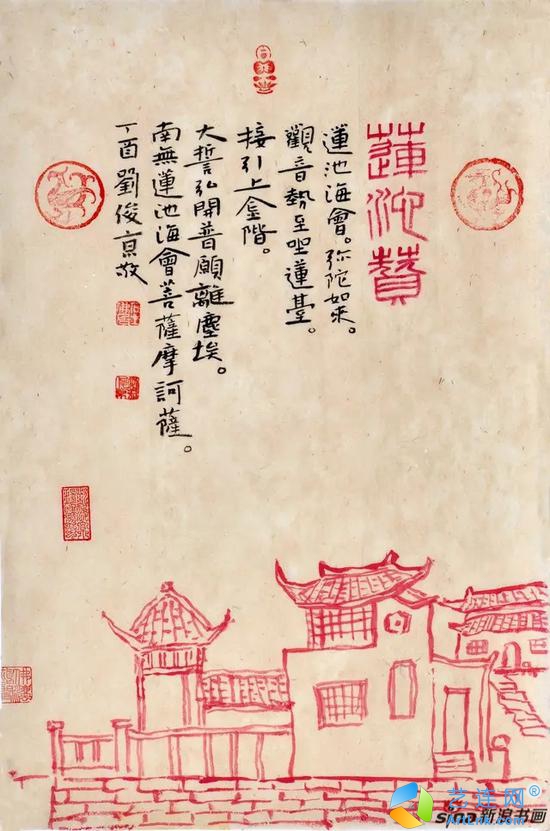 蓮池贊
蓮池海會。弥陀如來。
觀音勢至坐蓮臺。
接引上金階。
大誓弘開普願離塵埃。
南無蓮池海會菩薩摩訶薩。
丁酉劉俊京敬
艺连网®
sina新浪书画